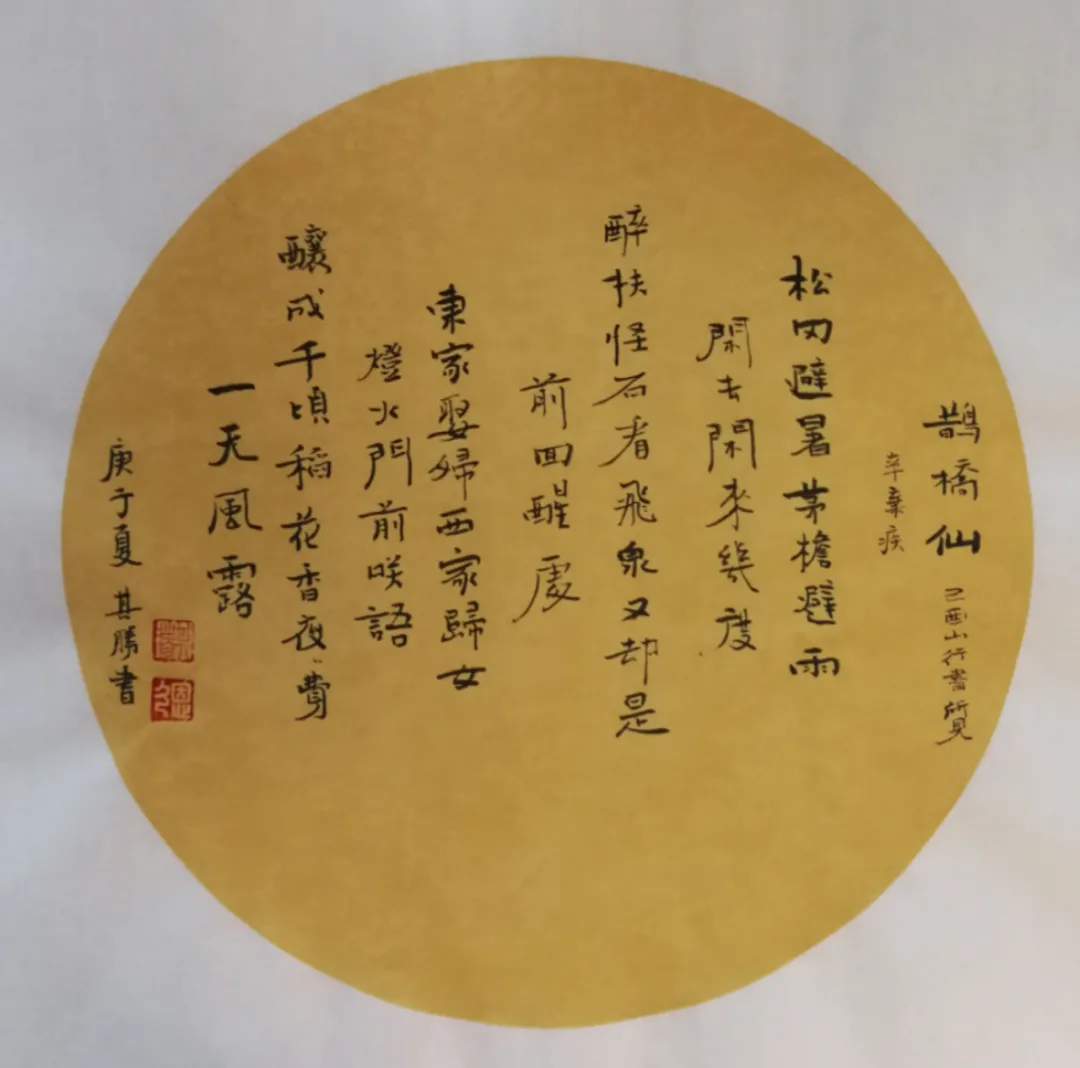 鵲橋仙 己酉山行書所見
辛棄疾
松冈避暑茅檐避雨
閑去閑來幾度
醉扶怪石看飛泉又却是
前回醒處
東家娶婦西家歸女
燈火門前咲語
釀成千頃稻花香夜〻費
一天風露
庚子夏 其勝書